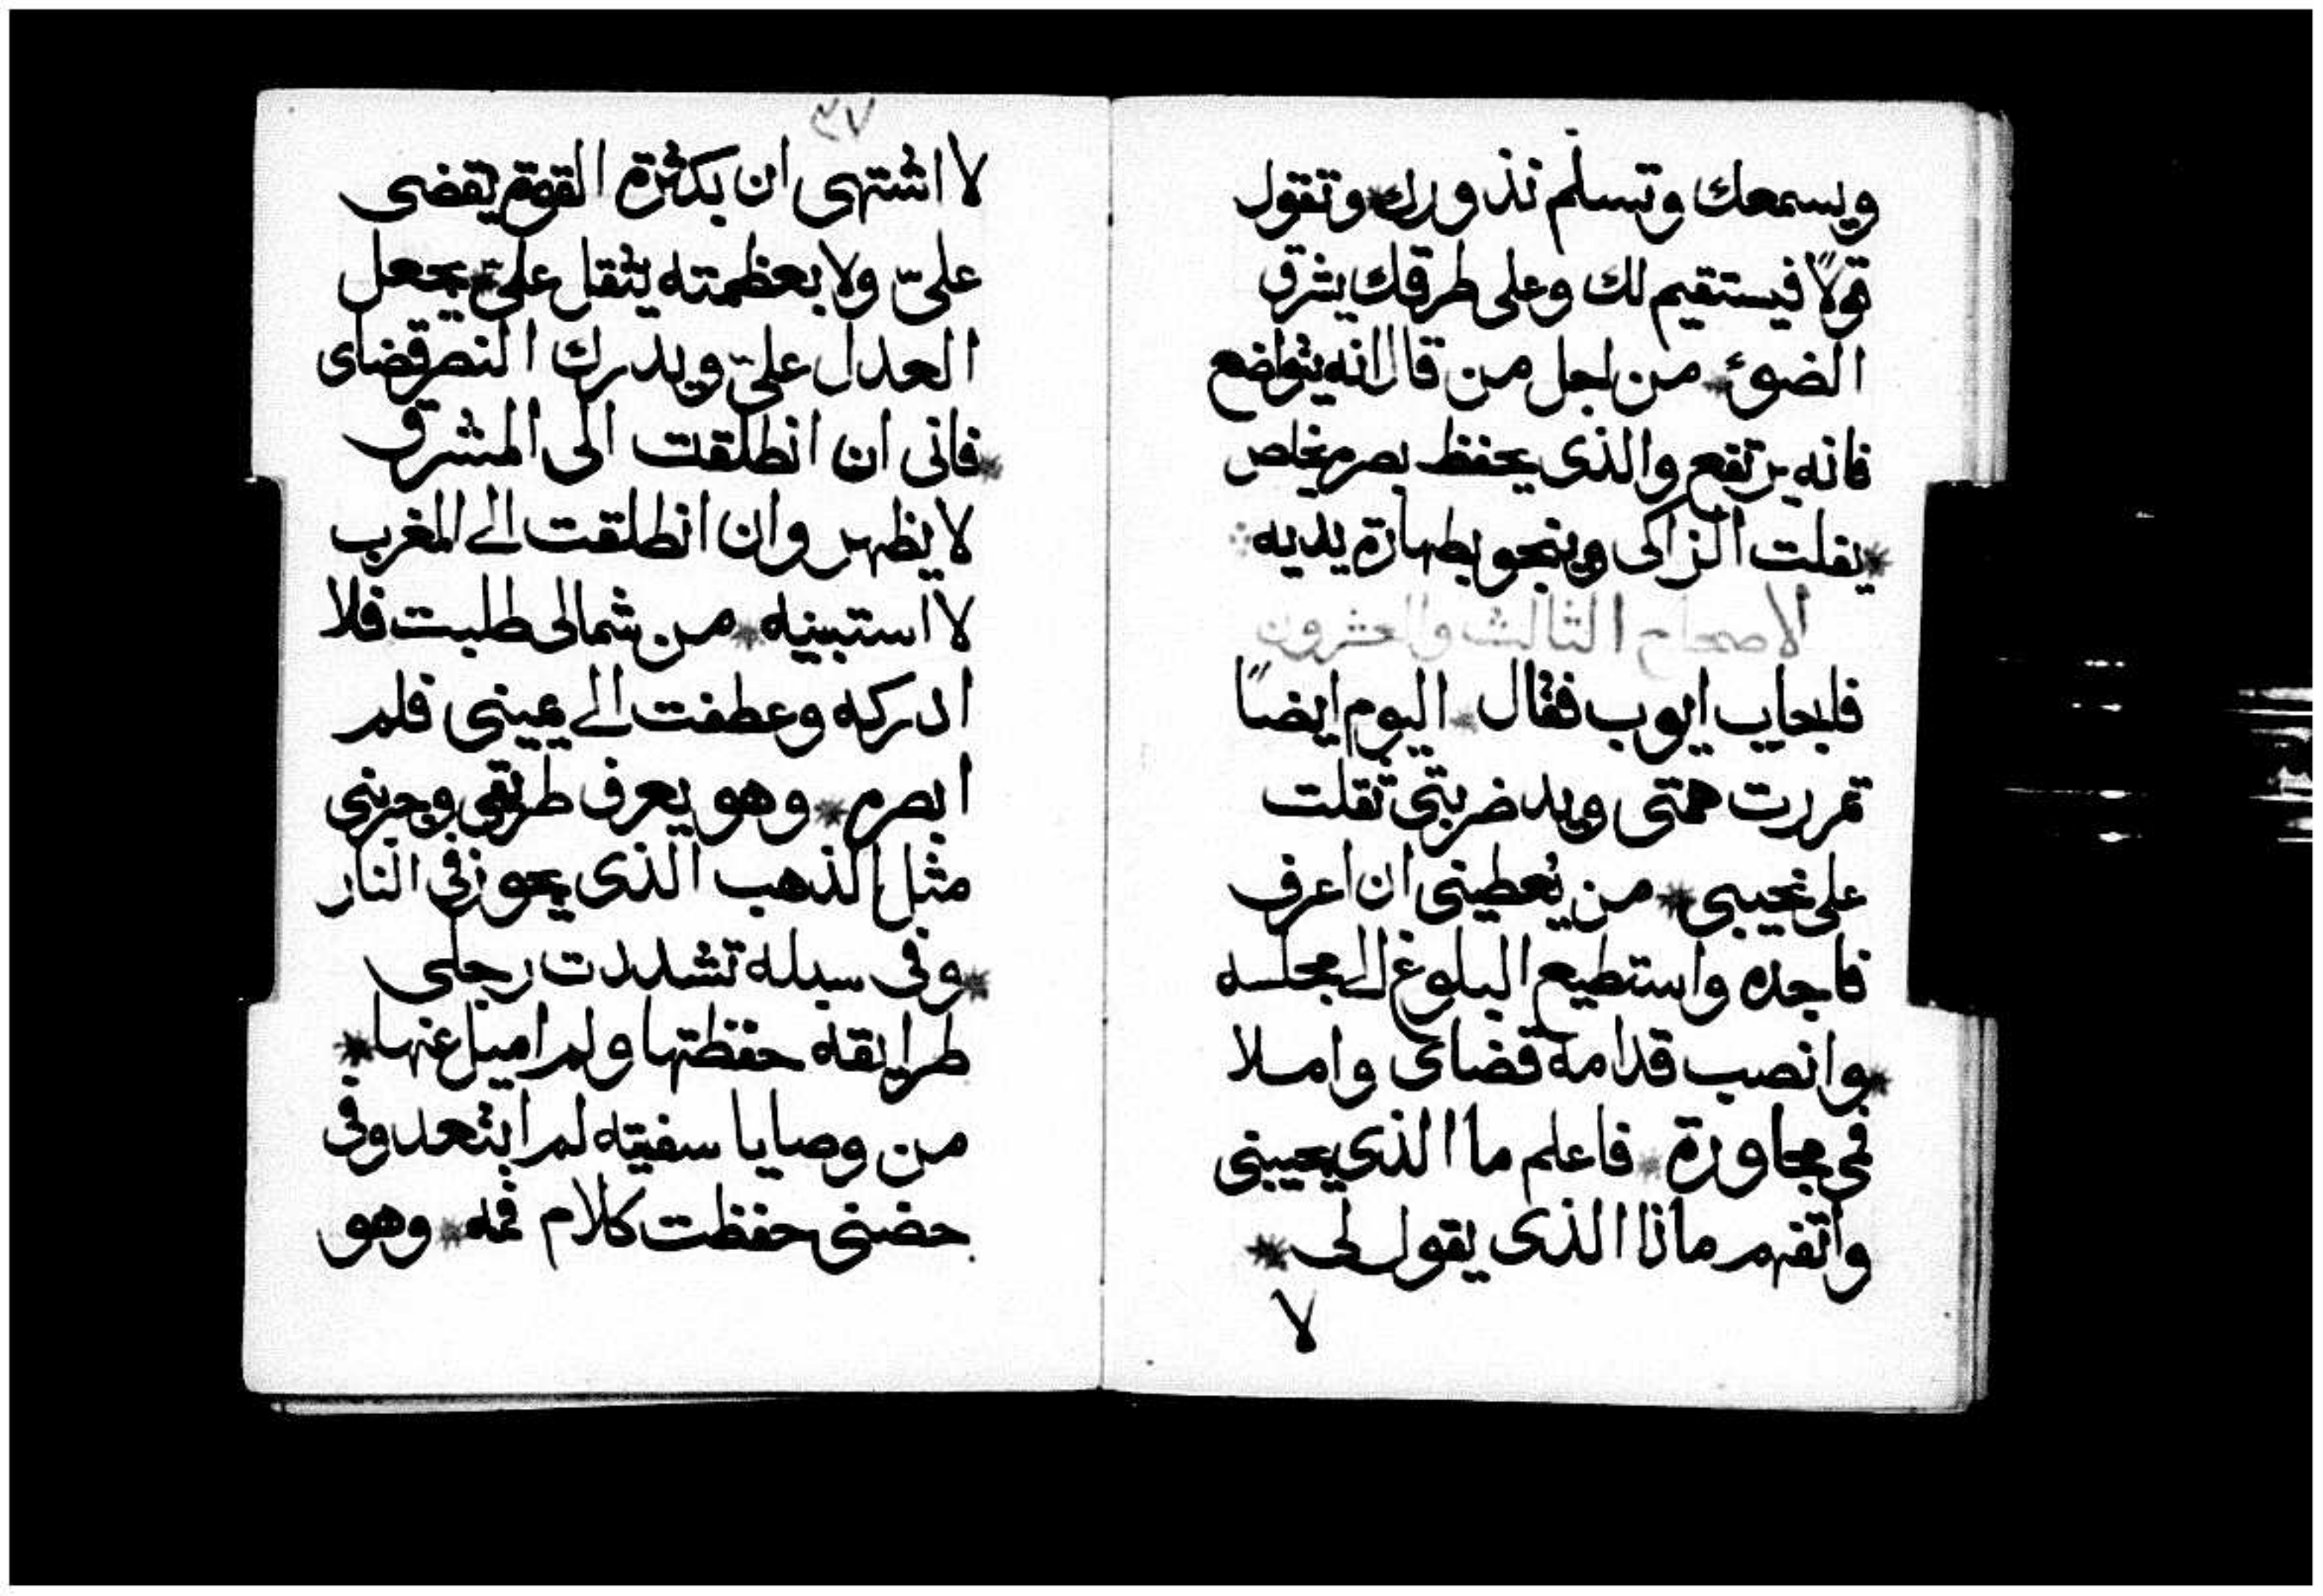 ويسمعك وتسلم نذورك وتقول
قولاً فيستقيم لك وعلى طرقك يشرق
الضوئ * من اجل من قال انه يتواضع
فانه يرتفع والذى يحفظ بصره يخلص
* يفلت الزاكى وينجو بطهارة يديه
الاصحاح الثالث والعشرون
فاجاب ايوب فقال * اليوم ايضاً
تمررت همتى ويد ضربتى ثقلت
على نحيبى * من يُعطينى ان اعرف
فاجده واستطيع البلوغ الى مجلسه
* وانصب قدامه قضاى واملا
فمى مجاورة * فاعلم ما الذى يجيبنى
واتفهم ماذا الذى يقول لى *
لا
٣٧
لا اشتهى ان بكثرة القوة يقضى
علىّ ولا بعظمته يثقل علىّ * يجعل
العدل علىّ ويدرك النصر قضاى
* فانى ان انطلقت الى المشرق
لا يظهر وان انطلقت الى المغرب
لا استبينه * من شمالى طلبت فلا
ادركه وعطفت الى يمينى فلم
ابصره * وهو يعرف طريقى وجربنى
مثل الذهب الذى يجوز فى النار
* وفى سبله تشددت رجلى
طرايقه حفظتها ولم اميل عنها *
من وصايا سفيته لم ابتعد وفى
حضنى حفظت كلام فمه * وهو